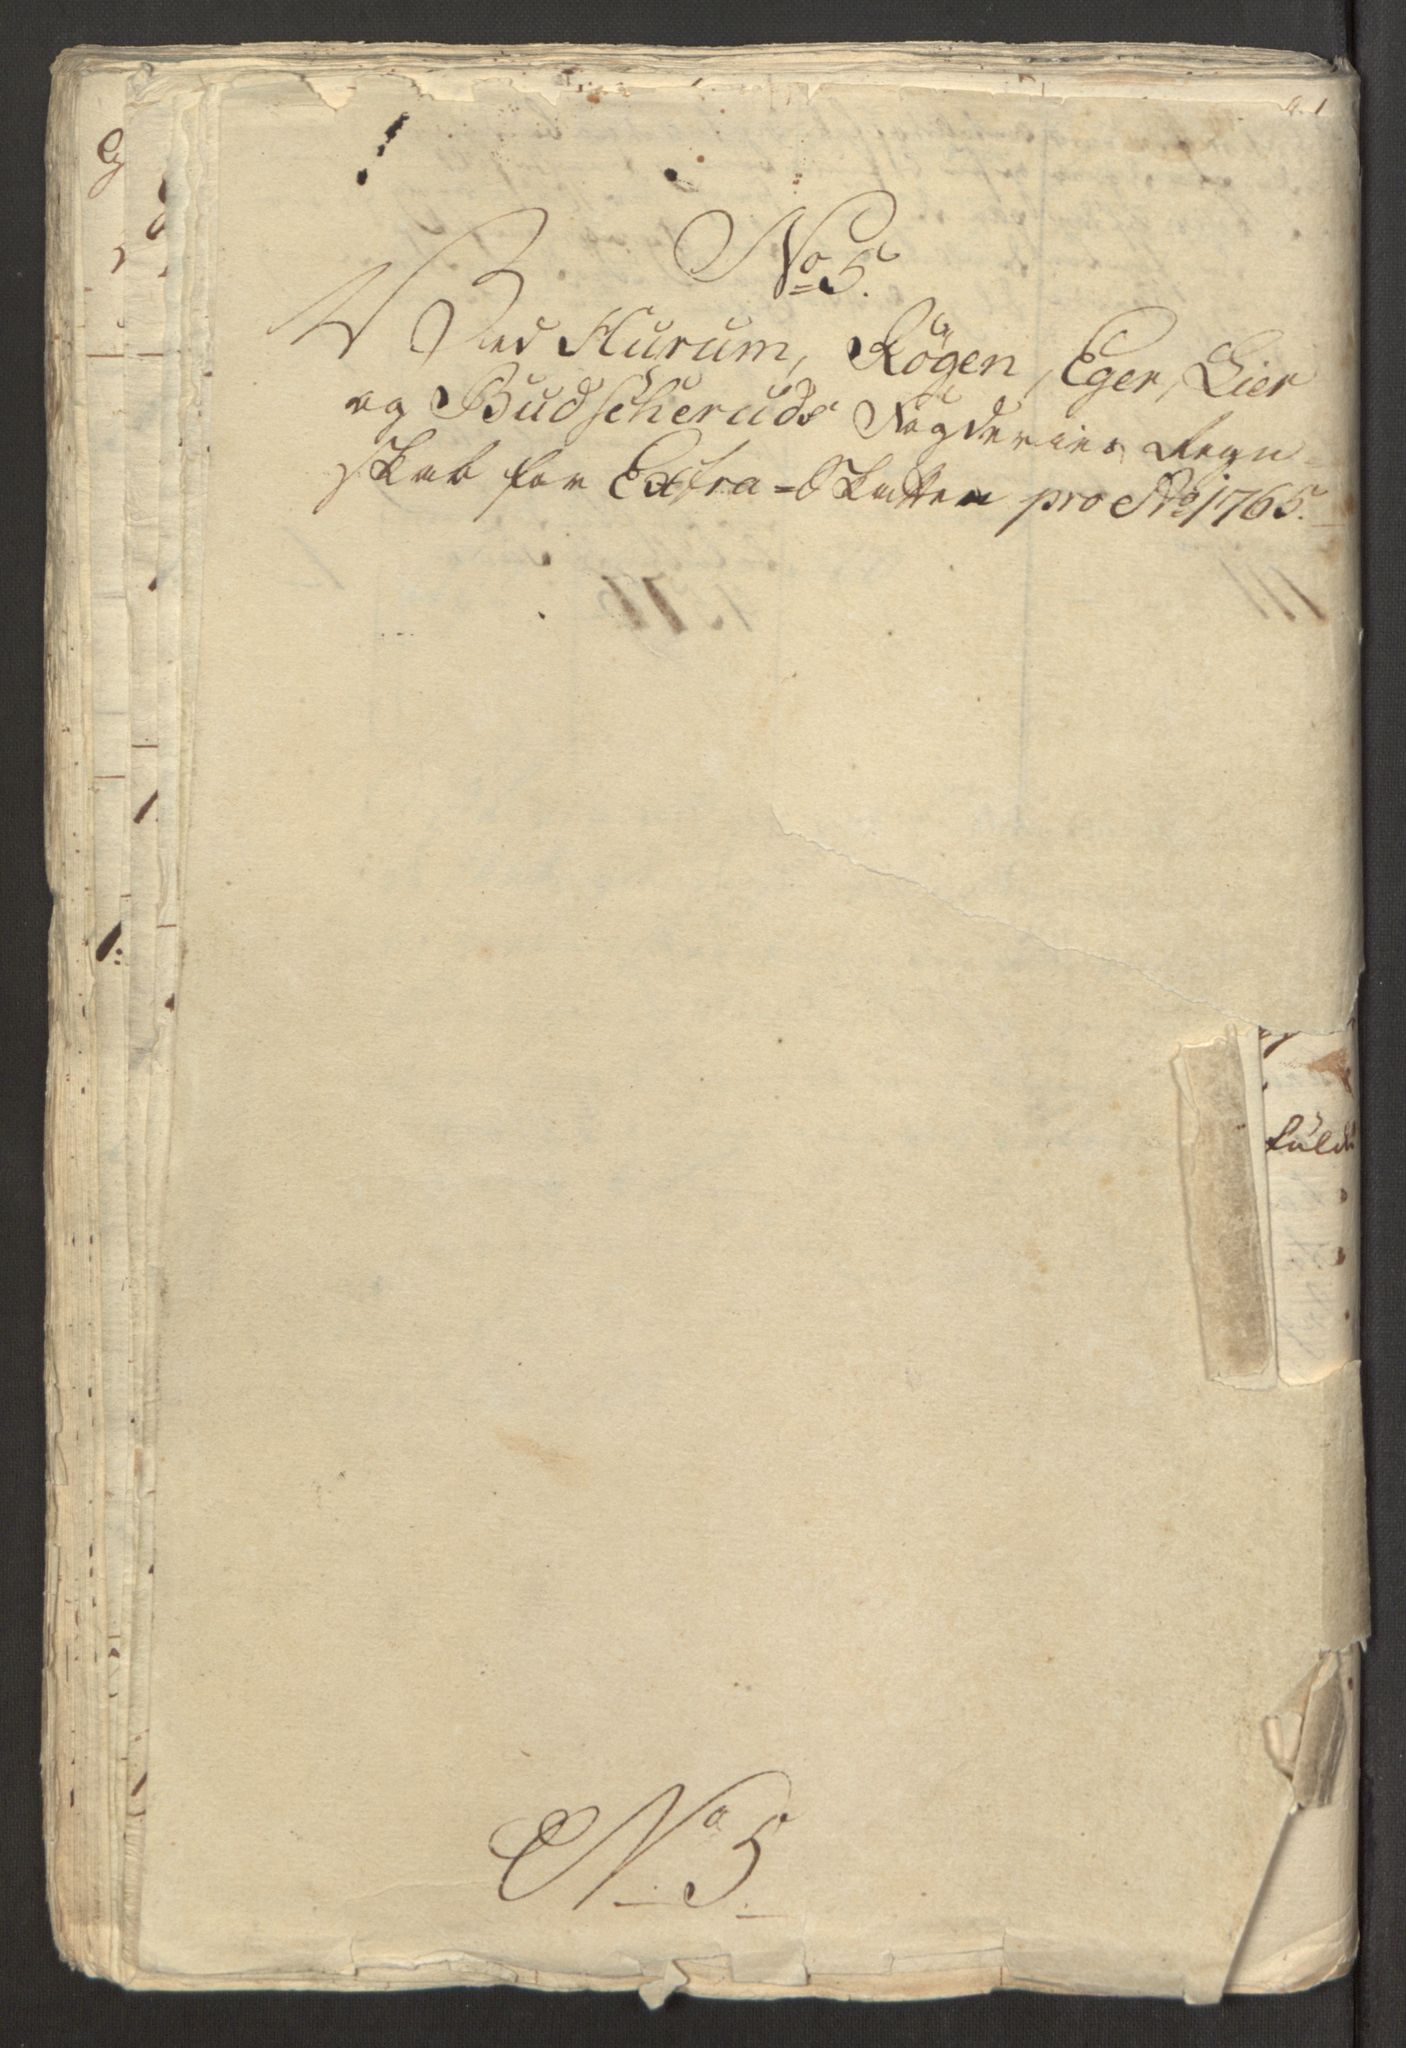 No 5.
Ved Hurum, Røgen, Eger, Lier
og Budscheruds Fogderies Regn=
skab for Extra=Skatten pro Ao 1765.
No 5